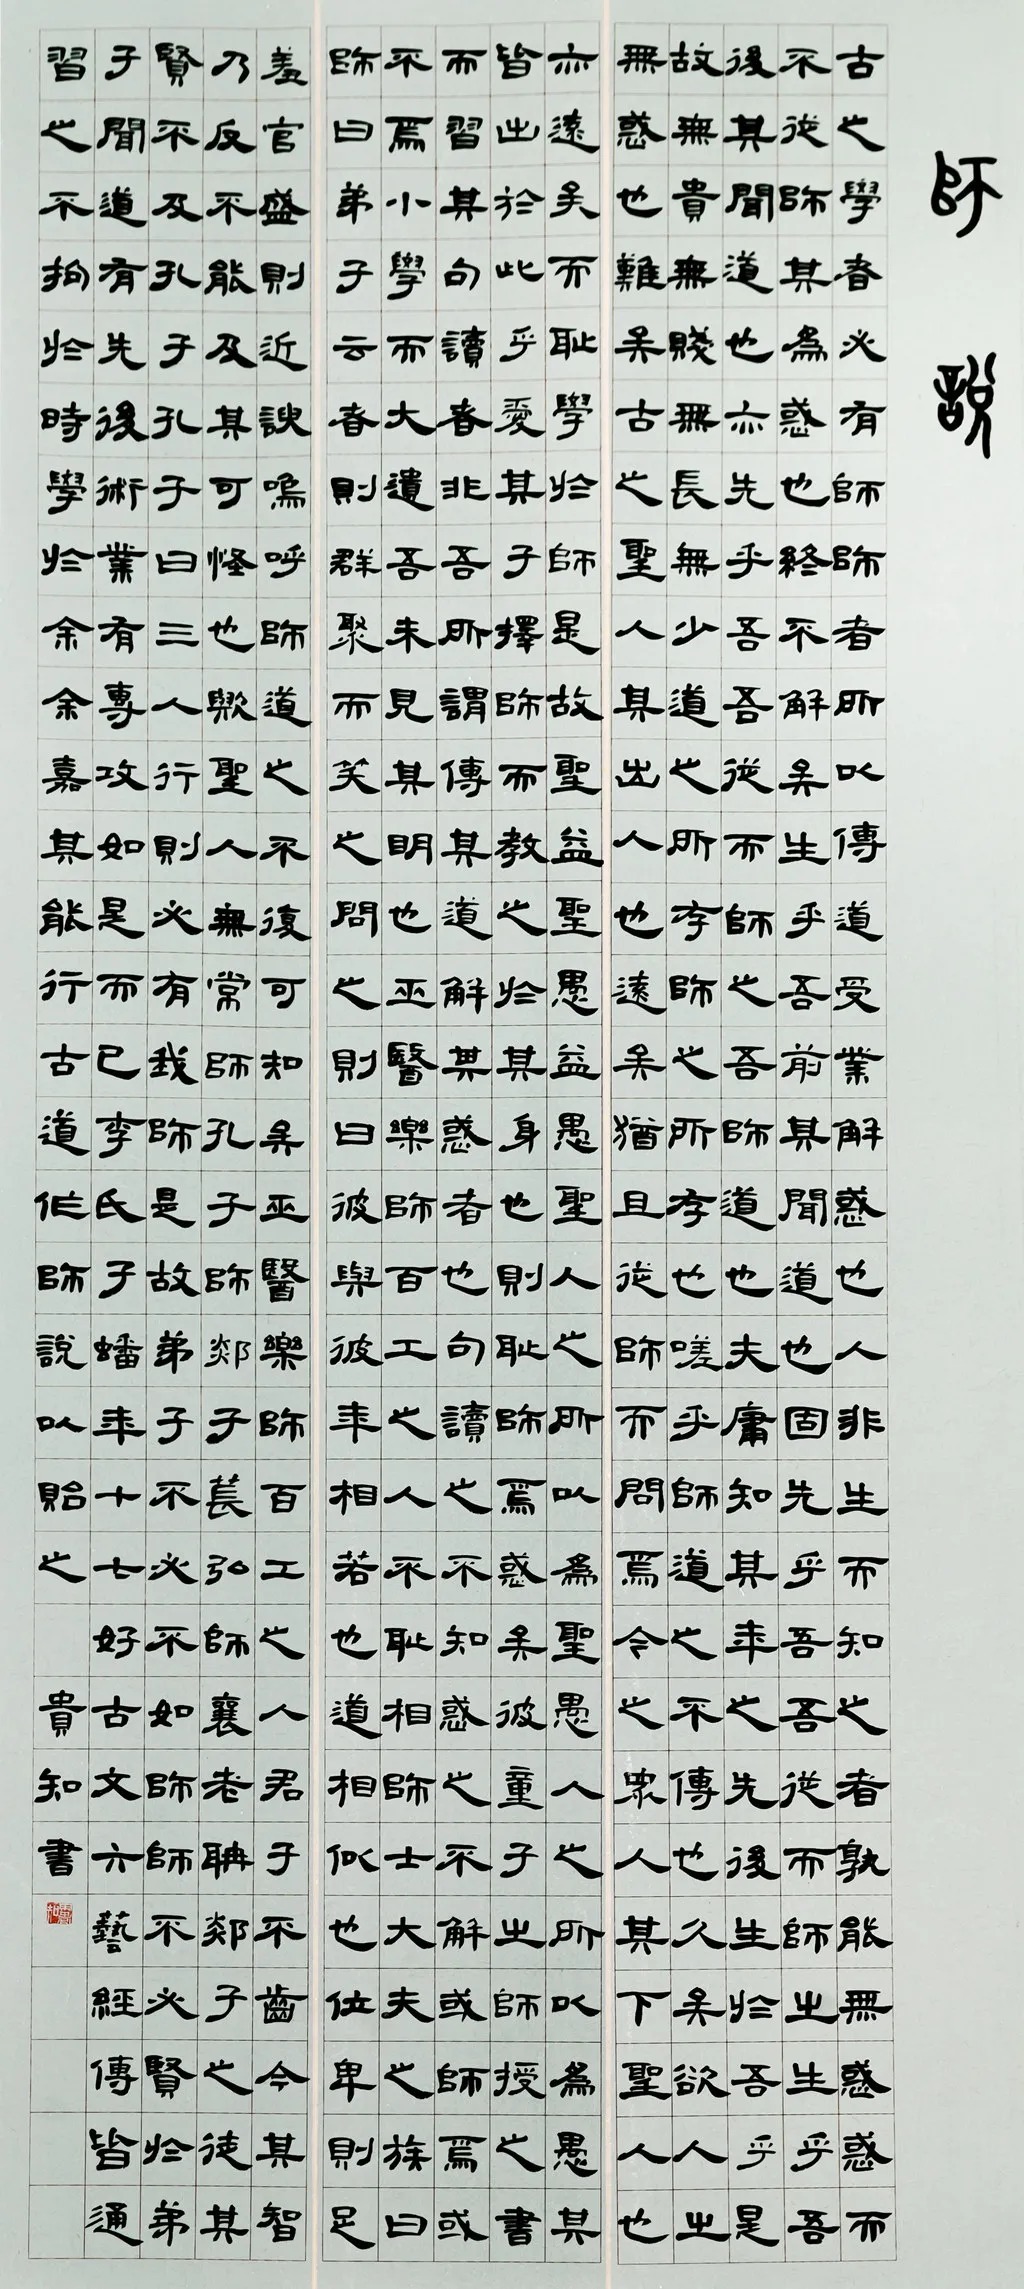 師說
古之學者必有師師者所以傳道受業解惑也人非生而知之者孰能無惑惑而
不從師其為惑也終不解矣生乎吾前其聞道也固先乎吾吾從而師之生乎吾
後其聞道也亦先乎吾吾從而師之吾師道也夫庸知其年之先後生於吾乎是
故無貴無賤無長無少道之所存師之所存也嗟乎師道之不傳也久矣欲人之
無惑也難矣古之聖人其出人也遠矣猶且從師而問焉今之眾人其下聖人也
亦遠矣而耻學於師是故聖益聖愚益愚聖人之所以為聖愚人之所以為愚其
皆出於此乎愛其子擇師而教之於其身也則耻師焉惑矣彼童子之師授之書
而習其句讀者非吾所謂傳其道解其惑者也句讀之不知惑之不解或師焉或
不焉小學而大遺吾未見其明也巫醫樂師百工之人不耻相師士大夫之族曰
師曰弟子云者則群聚而笑之問之則曰彼與彼年相若也道相似也位卑則足
羞官盛則近諛嗚呼師道之不復可知矣巫醫樂師百工之人君子不齒今其智
乃反不能及其可怪也歟聖人無常師孔子師郯子萇弘師襄老聃郯子之徒其
賢不及孔子孔子曰三人行則必有我師是故弟子不必不如師師不必賢於弟
子聞道有先後術業有專攻如是而已李氏子蟠年十七好古文六藝經傳皆通
習之不拘於時學於余余嘉其能行古道作師說以貽之 貴知書